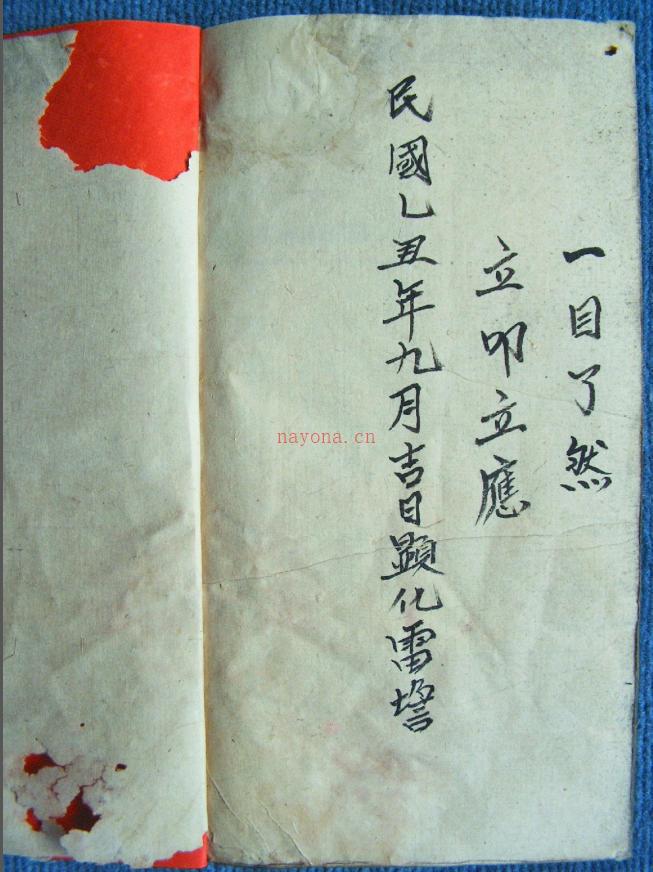 一目了然
立叩立應
民國乚丑年九月吉日顕化雷壇
nayona.cn